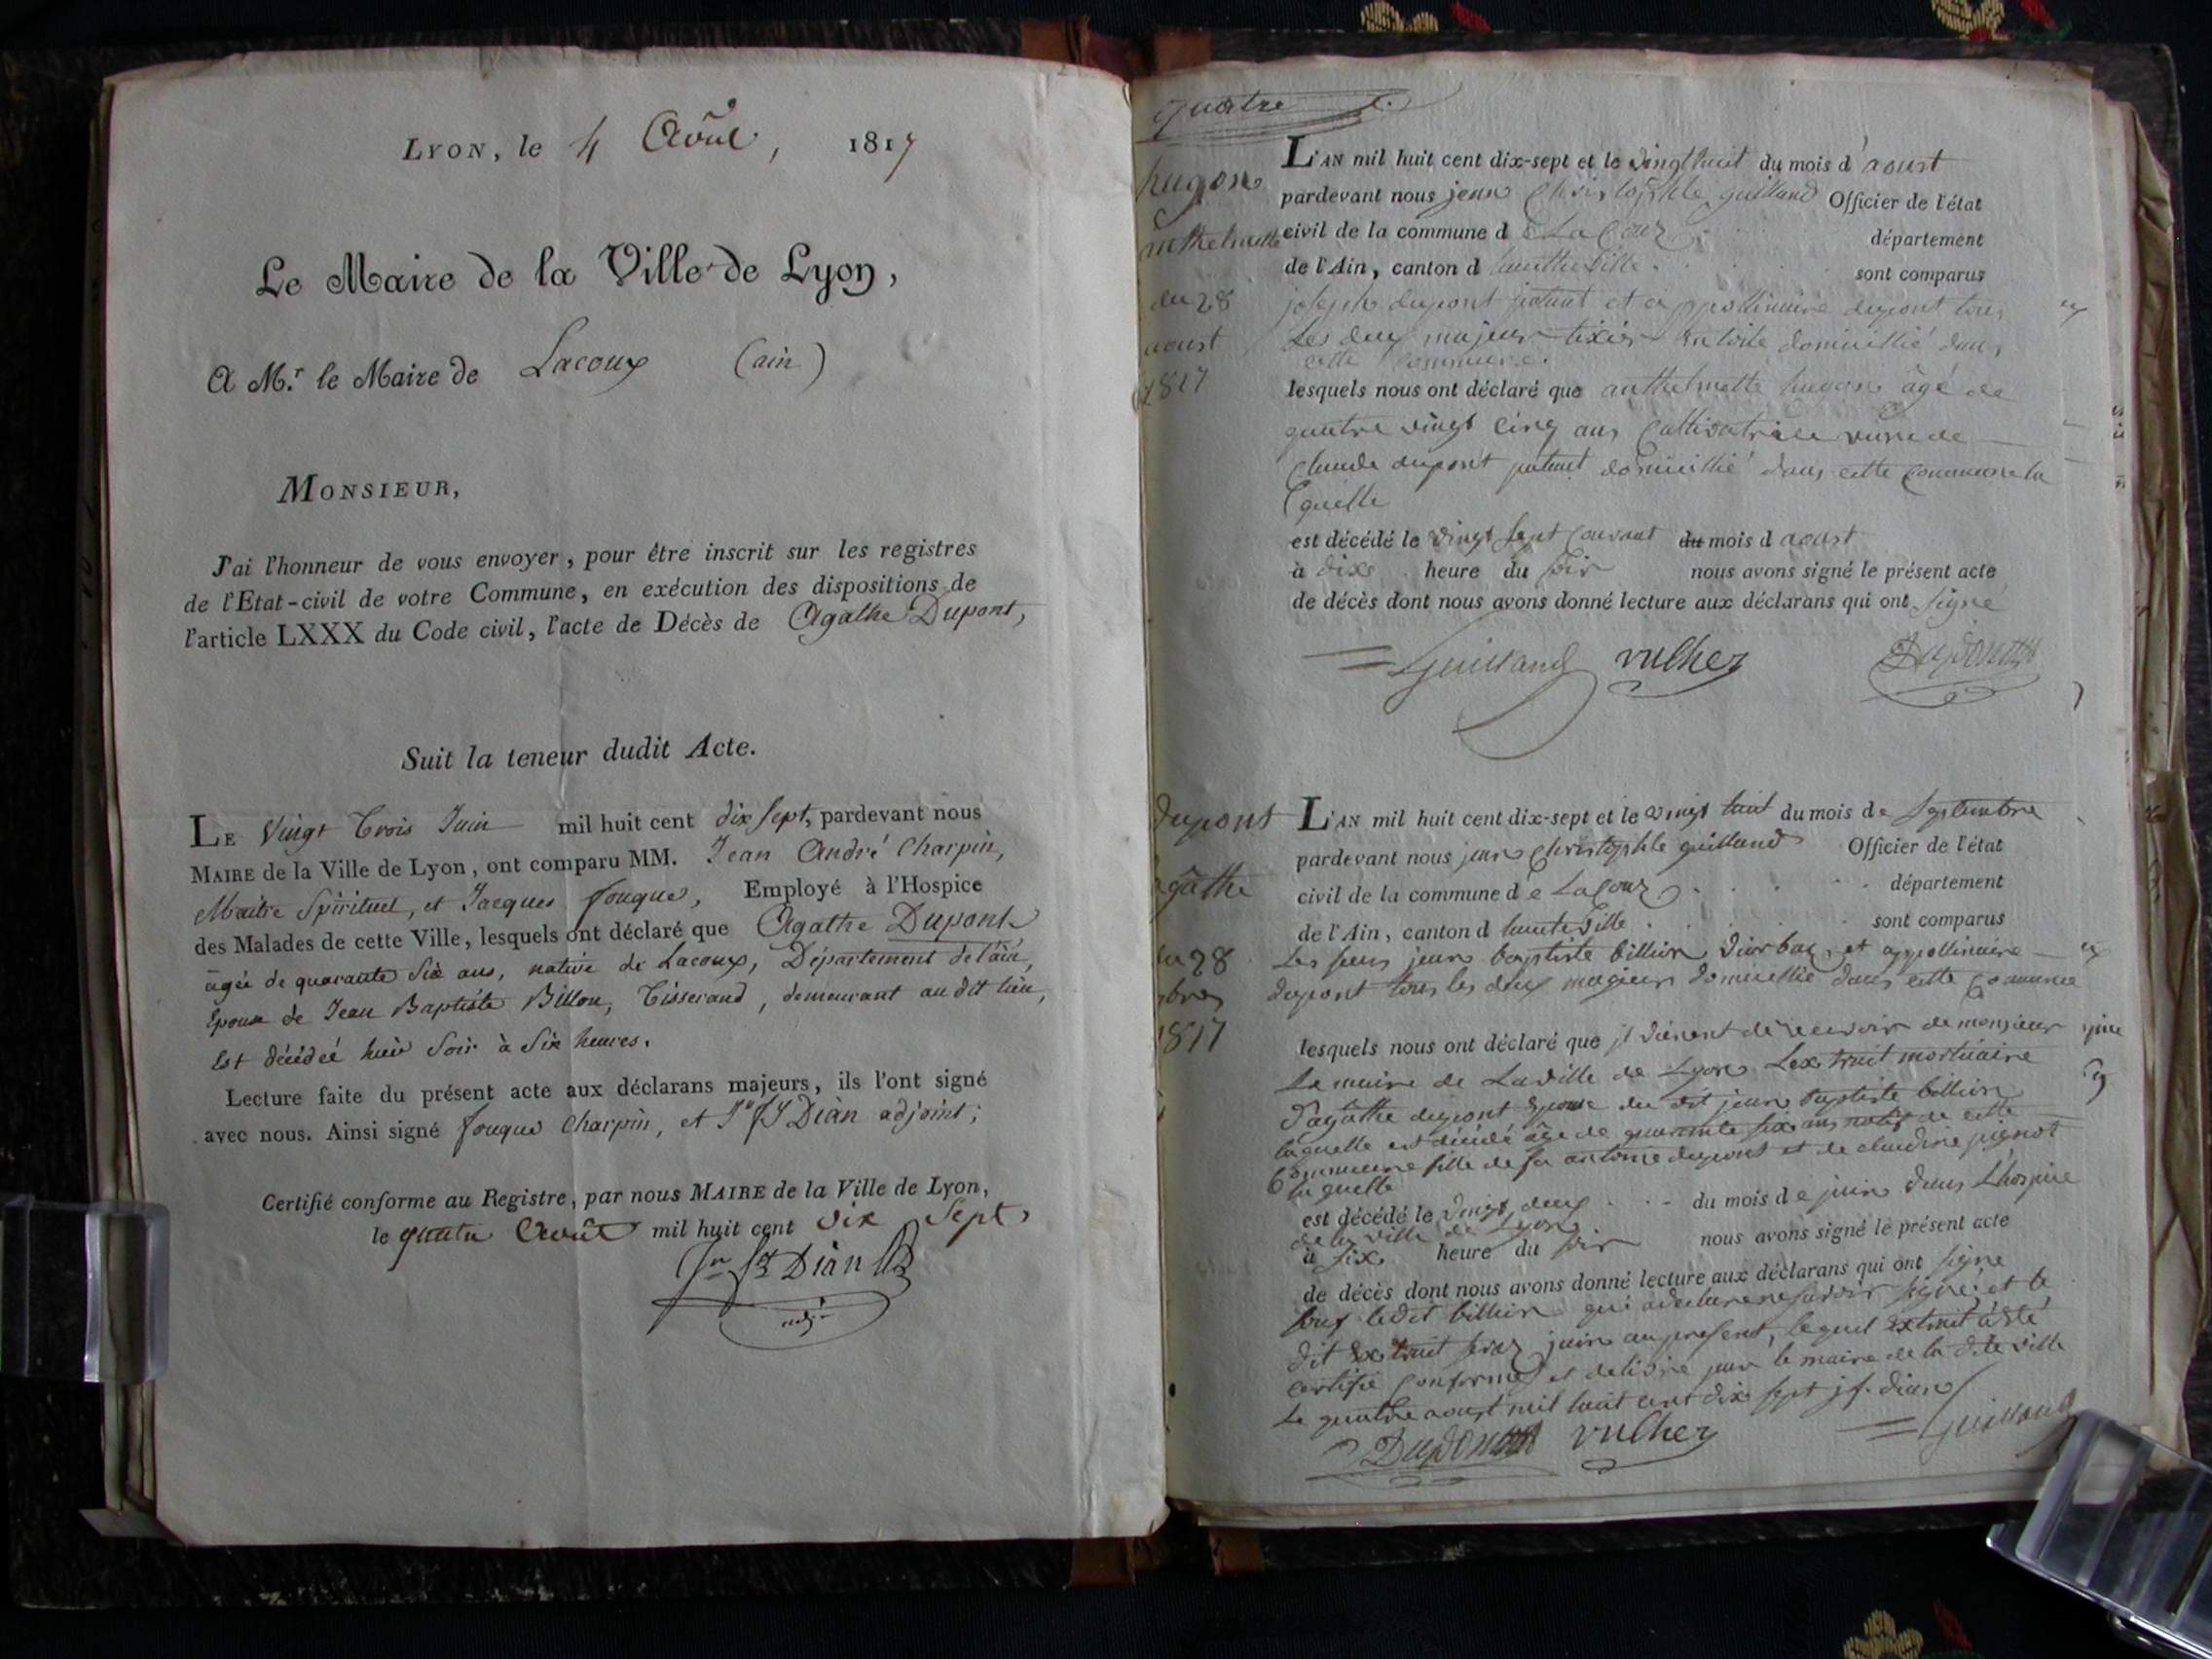 LYON, le 4 Aoûl, 1817
Le Maire de la Ville de Lyon,
A M.r le Maire de Lacoux (ain)
MONSIEUR,
J'ai l'honneur de vous envoyer, pour être inscrit sur les registres
de l'Etat-civil de votre Commune, en exécution des dispositions de
l'article LXXX du Code civil, l'acte de Décès de Agathe Dupont,
Suit la teneur dudit Acte.
LE Vingt Trois Juin mil huit cent dix Sept, pardevant nous
MAIRE de la Ville de Lyon, ont comparu MM. Jean André Charpin,
Maitre Spirituel, et Jacques fouque, Employé à l'Hospice
des Malades de cette Ville, lesquels ont déclaré que Agathe Dupont
âgée de quarante Six ans, native de Lacoux, Département de l'ain,
Epouse de Jean Baptiste Billon, Tisserand, demeurant au dit lieu,
Est décédée hier Soir à Six heures.
Lecture faite du présent acte aux déclarans majeurs, ils l'ont signé
avec nous. Ainsi signé fouque Charpin, et Dian adjoint;
Certifié conforme au Registre, par nous MAIRE de la Ville de Lyon,
le quatre Août mil huit cent dix Sept
Dian
quatre
hugon
anthelmette
du 28
aoust
1817
L'AN mil huit cent dix-sept et le vingt huit du mois d'aoust
pardevant nous jean Christophle guilland Officier de l'état
civil de la commune d e La Couz département
de l'Ain, canton d hauteville sont comparus
joseph dupont et appollinaire dupont tous
Les deux majeurs tixier en toile domicillié dans
cette commune.
lesquels nous ont déclaré que anthelmette hugon âgé de
quatre vingt cinq ans Cultivatrice veuve de
Claude dupont domicillié dans cette commune la
quelle
est décédé le vingt sept courant du mois d aoust
à dix heure du soir nous avons signé le présent acte
de décès dont nous avons donné lecture aux déclarans qui ont signé
Guilland vulhez Dupont
dupont
agâthe
du 28
bre
1817
L'AN mil huit cent dix-sept et le vingt huit du mois de septembre
pardevant nous jean Christophle guilland Officier de l'état
civil de la commune d e La Couz département
de l'Ain, canton d hauteville sont comparus
Les sieurs jean baptiste billion et appollinaire
dupont tous les deux majeurs domicillié dans cette commune
lesquels nous ont déclaré que il vienent de recevoir de monsieur
Le maire de La ville de Lyon Lextrait mortuaire
d'agâthe dupont Epouse du dit jean baptiste billion
laquelle est décédé âgé de quarante six ans natif de cette
Commune fille de fu antoine dupont et de claudine pignot
laquelle
est décédé le vingt deux du mois d e juin dans L'hospice
de la ville de Lyon
à six heure du soir nous avons signé le présent acte
de décès dont nous avons donné lecture aux déclarans qui ont signé
souf ledit billion qui a declare ne savoir signé et le
dit Extrait sera join au present, lequel Extrait à été
certifié conforme et delivré par le maire de la dite ville
Le quatre aoust mil huit cent dix sept j f. dian
Dupont vulhez Guilland